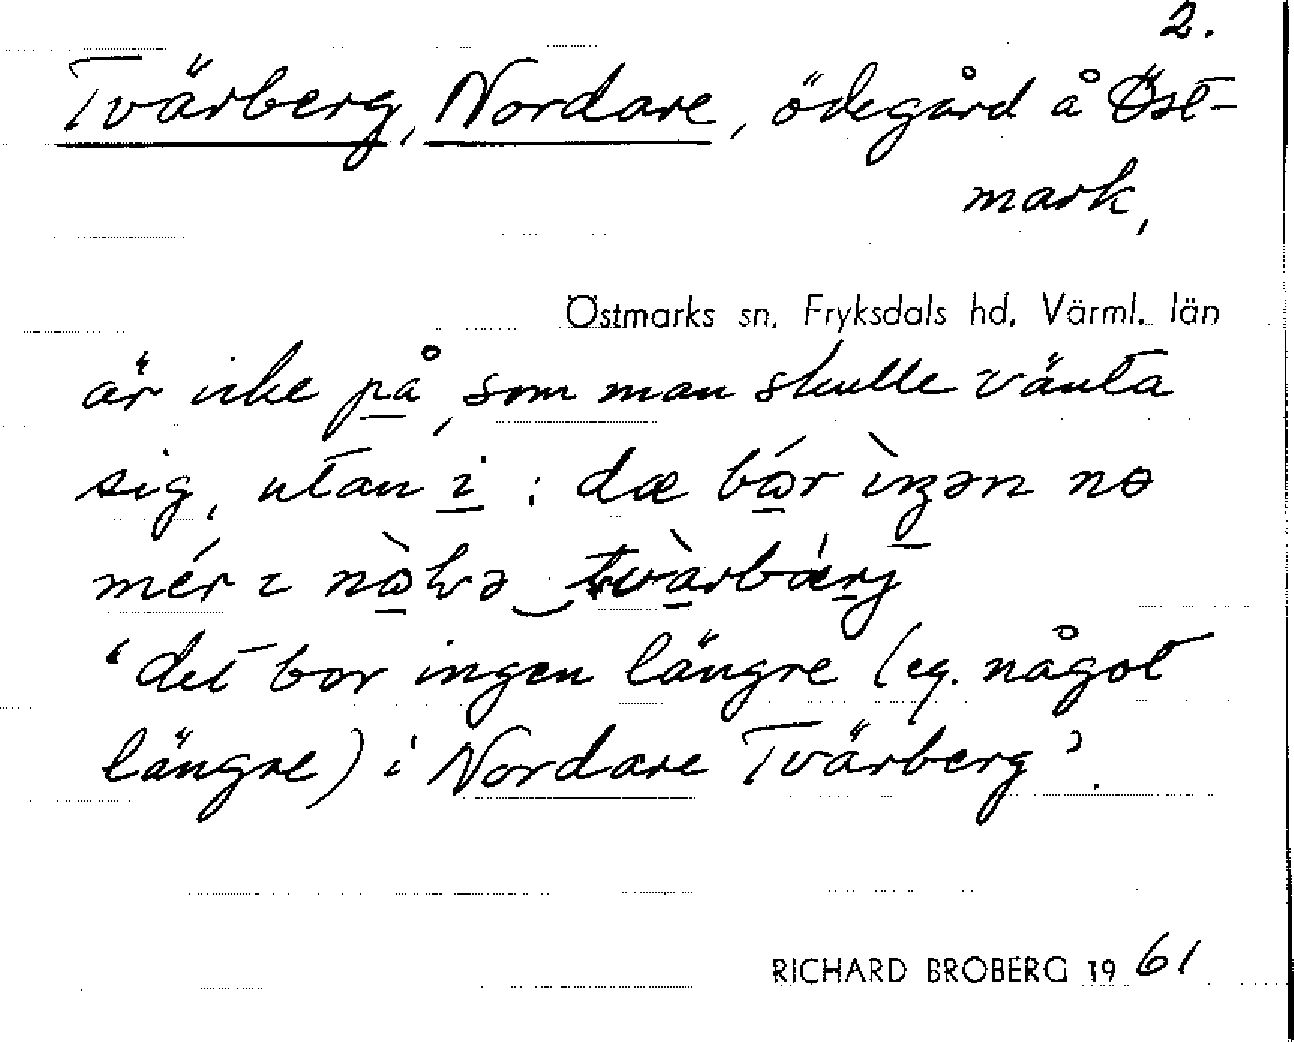 2.
Tvärberg, Nordare, ödegård å Öst-
mark,
Östmarks sn, Fryksdals hd, Värml. län
är icke på, som man skulle vänta
sig, utan i : dæ bór ìŋən nə
mér ɩ nòɷ̀ƚə‿tvàrbǽrj
‘det bor ingen längre (eg. något
längre) i Nordare Tvärberg’.
RICHARD BROBERG 1961